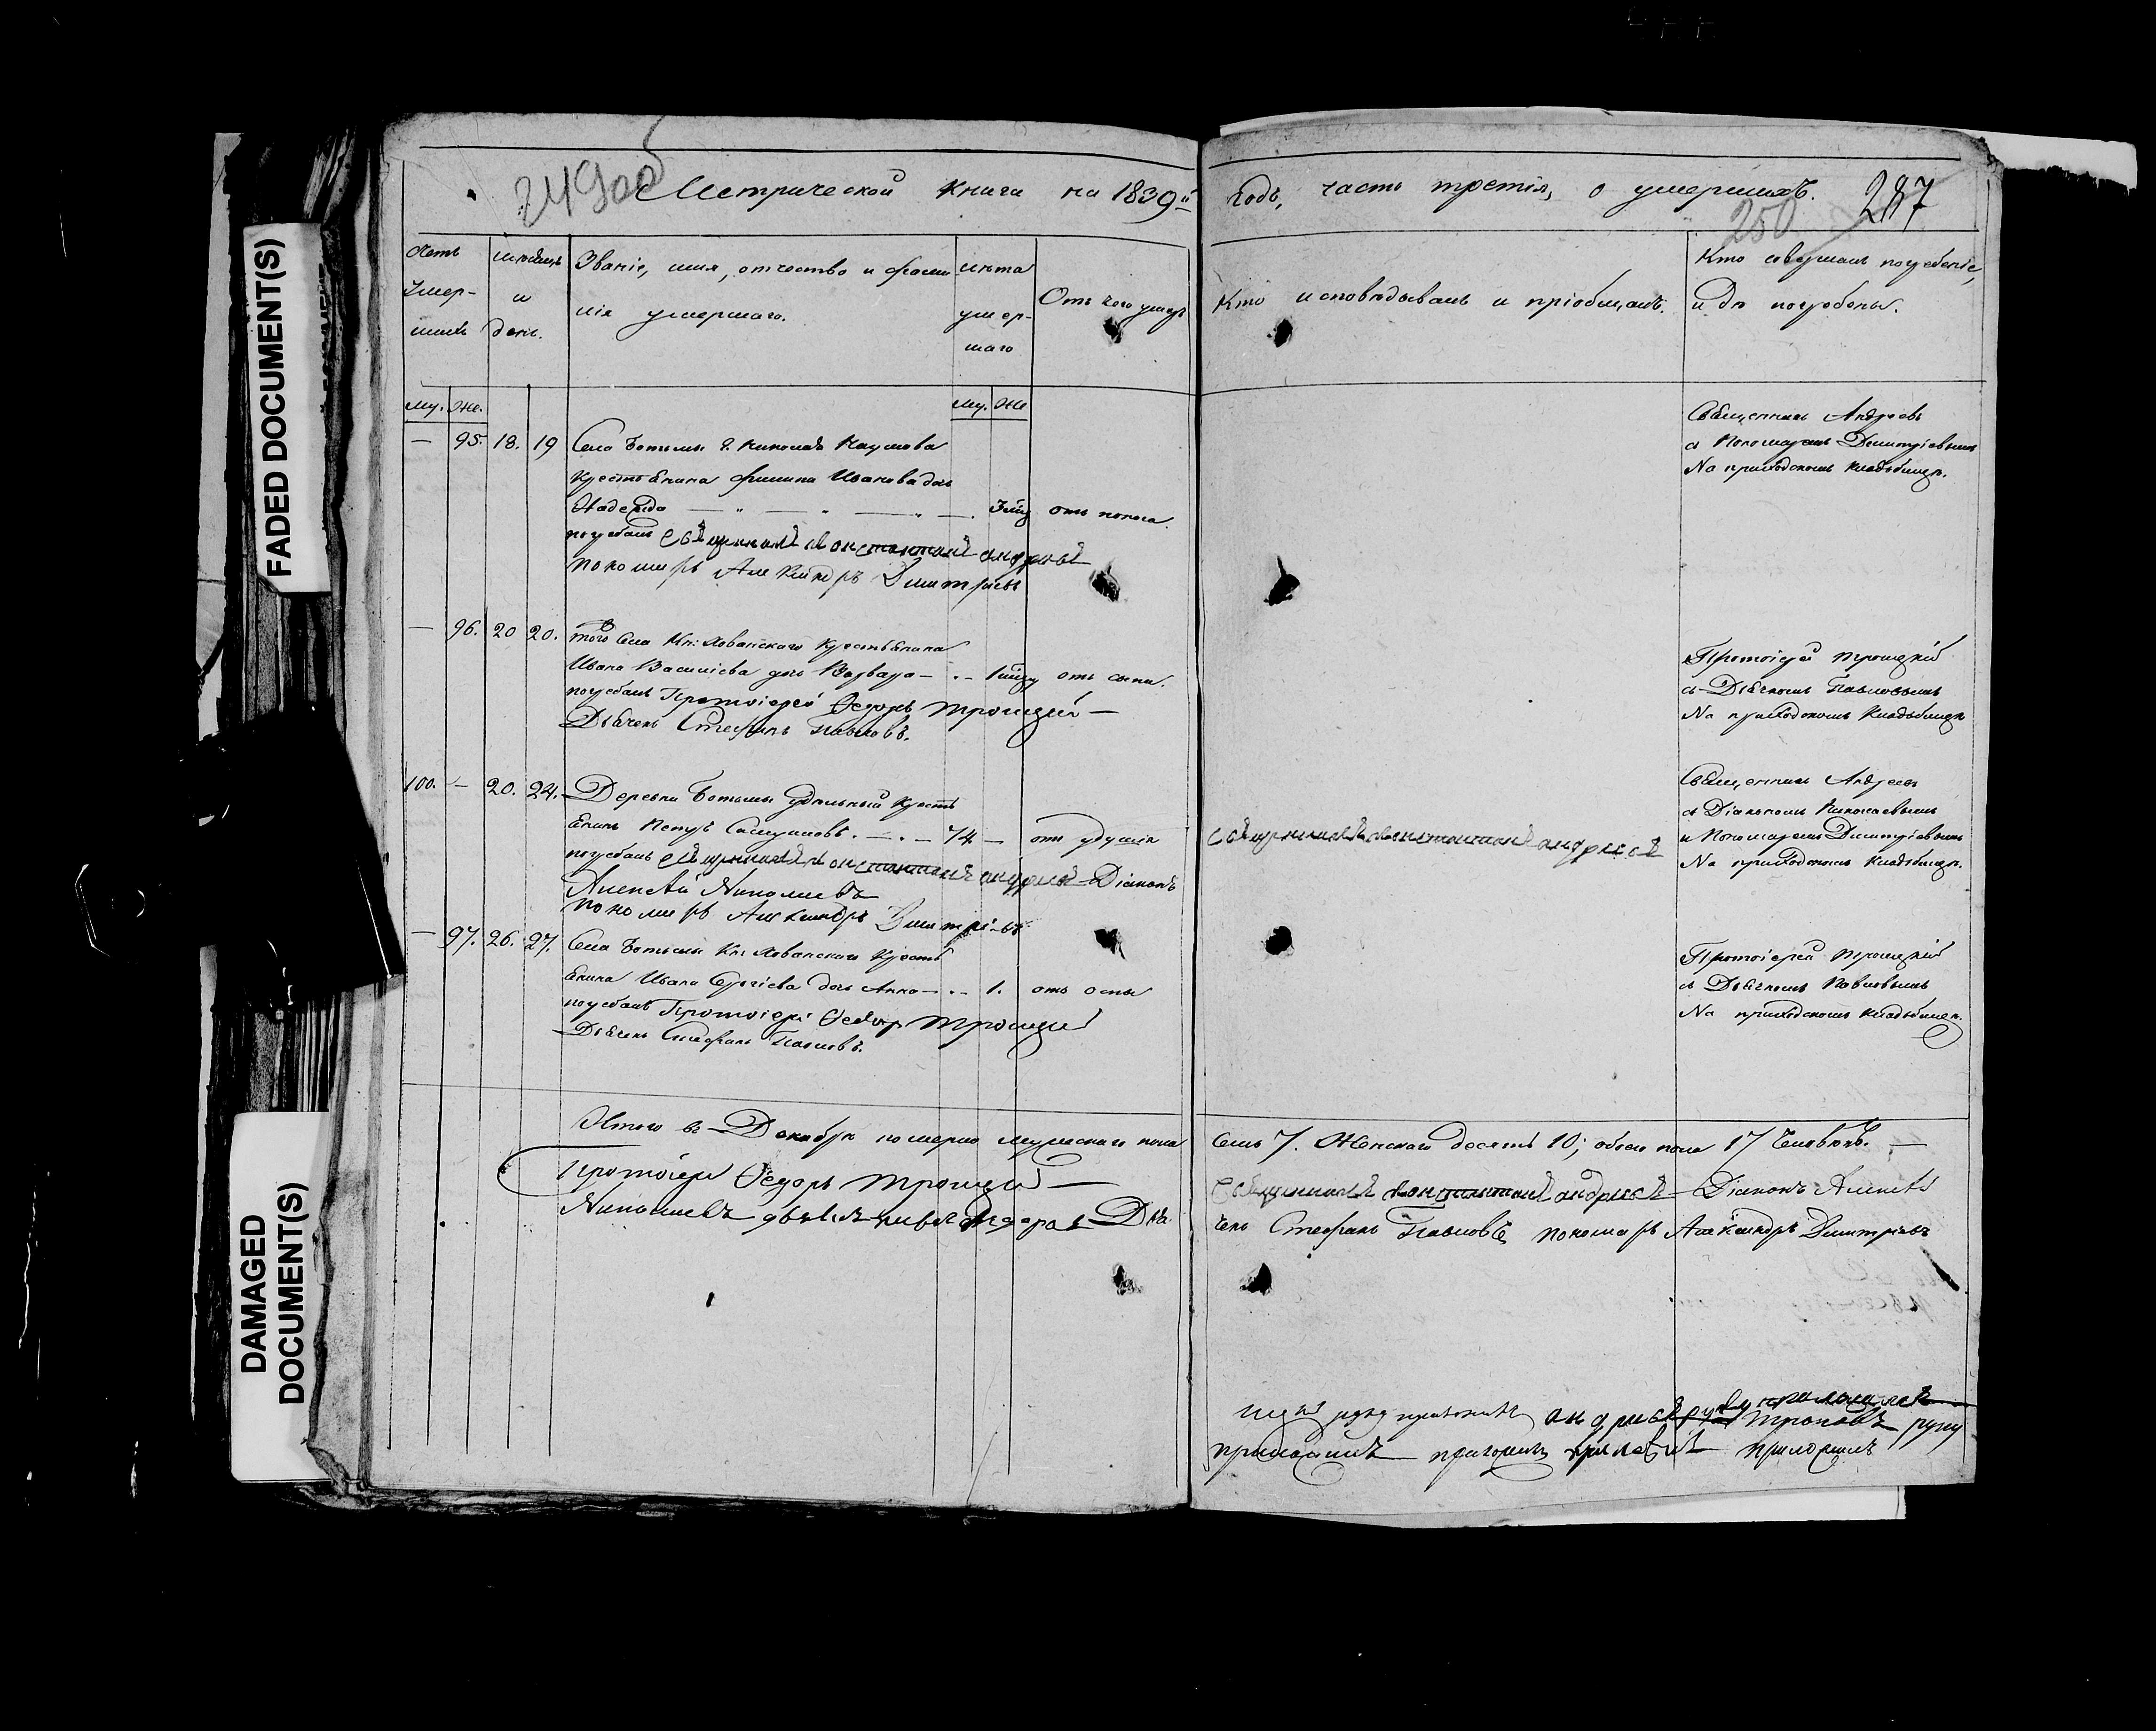 FADED DOCUMENT(S)
DAMAGED
DOCUMENT(S)
249 об
Метрической книги на 1839й
Годъ, часть третія, о умершихъ. 287
250
Счетъ
умер-
шихъ
мѣсяцъ
и
день.
Званіе, имя, отчество и фами-
лія умершаго.
лѣта
умер-
шаго
Отъ чего умеръ
Кто исповѣдывалъ и пріобщалъ.
Кто совершалъ погребеніе,
и гдѣ погребены.
му. же.
му. же
— 95. 18. 19 Села Ботьмы Г. Николая Наумова
крестьянина Филипа Иванова дочь
Надежда
отъ поноса.
погребалъ священникъ Константинъ Андреевъ
пономарь Александръ Димитріевъ
Священникъ Андреевъ
съ Пономаремъ Димитріевымъ
На приходскомъ кладбищѣ.
— 96. 20 20. того Села Кн: Хованскаго крестьянина
Ивана Василіева дочь Варвара
погребалъ Протоіерей Ѳедоръ Троицкій
Дьячекъ Стефанъ Павловъ.
Протоіерей Троицкій
съ Дьячкомъ Павловымъ
На приходскомъ кладбищѣ
100. — 20. 24. Деревни Ботьмы удѣльный кресть
янинъ Петръ 74 — отъ удушія
погребалъ священникъ Константинъ Андреевъ Діаконъ
Алексѣй Николаевъ
пономарь Александръ Димитріевъ
священникъ Константинъ Андреевъ
Священникъ Андреевъ
съ Діакономъ Николаевымъ
и Пономаремъ Димитріевымъ
На приходскомъ кладбищѣ.
— 97. 26. 27. Села Ботьмы Кн: Хованскаго кресть
янина Ивана Сергіева дочь Анна 1. отъ оспы
погребалъ Протоіерей Ѳедоръ Троицкій
Дьячекъ Стефанъ Павловъ.
Протоіерей Троицкій
съ Дьячкомъ Павловымъ
На приходскомъ кладбищѣ.
Итого въ Декабрѣ померло мужескаго пола
семь 7. Женскаго десять 10; обоего пола 17 человѣкъ.
Протоіерей Ѳедоръ Троицкій
священникъ Константинъ Андреевъ Діаконъ Алексѣй
Николаевъ Дья
чекъ Стефанъ Павловъ пономарь Александръ Димитріевъ